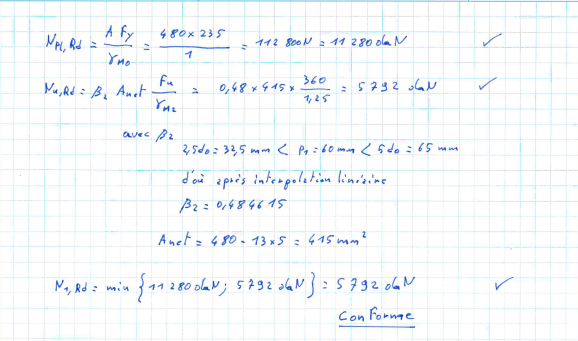 Npl,Rd = A Fy / γM0 = 480 × 235 / 1 = 112 800 N = 11 280 daN ✓
Nu,Rd = β2 Anet Fu / γM2 = 0,48 × 415 × 360 / 1,25 = 5 792 daN ✓
avec β2
2,5d0 = 32,5 mm < P1 = 60 mm < 5d0 = 65 mm
d'où après interpolation linéaire
β2 = 0,484615
Anet = 480 - 13×5 = 415 mm²
N1,Rd = min { 11 280 daN ; 5 792 daN } = 5 792 daN ✓
Conforme